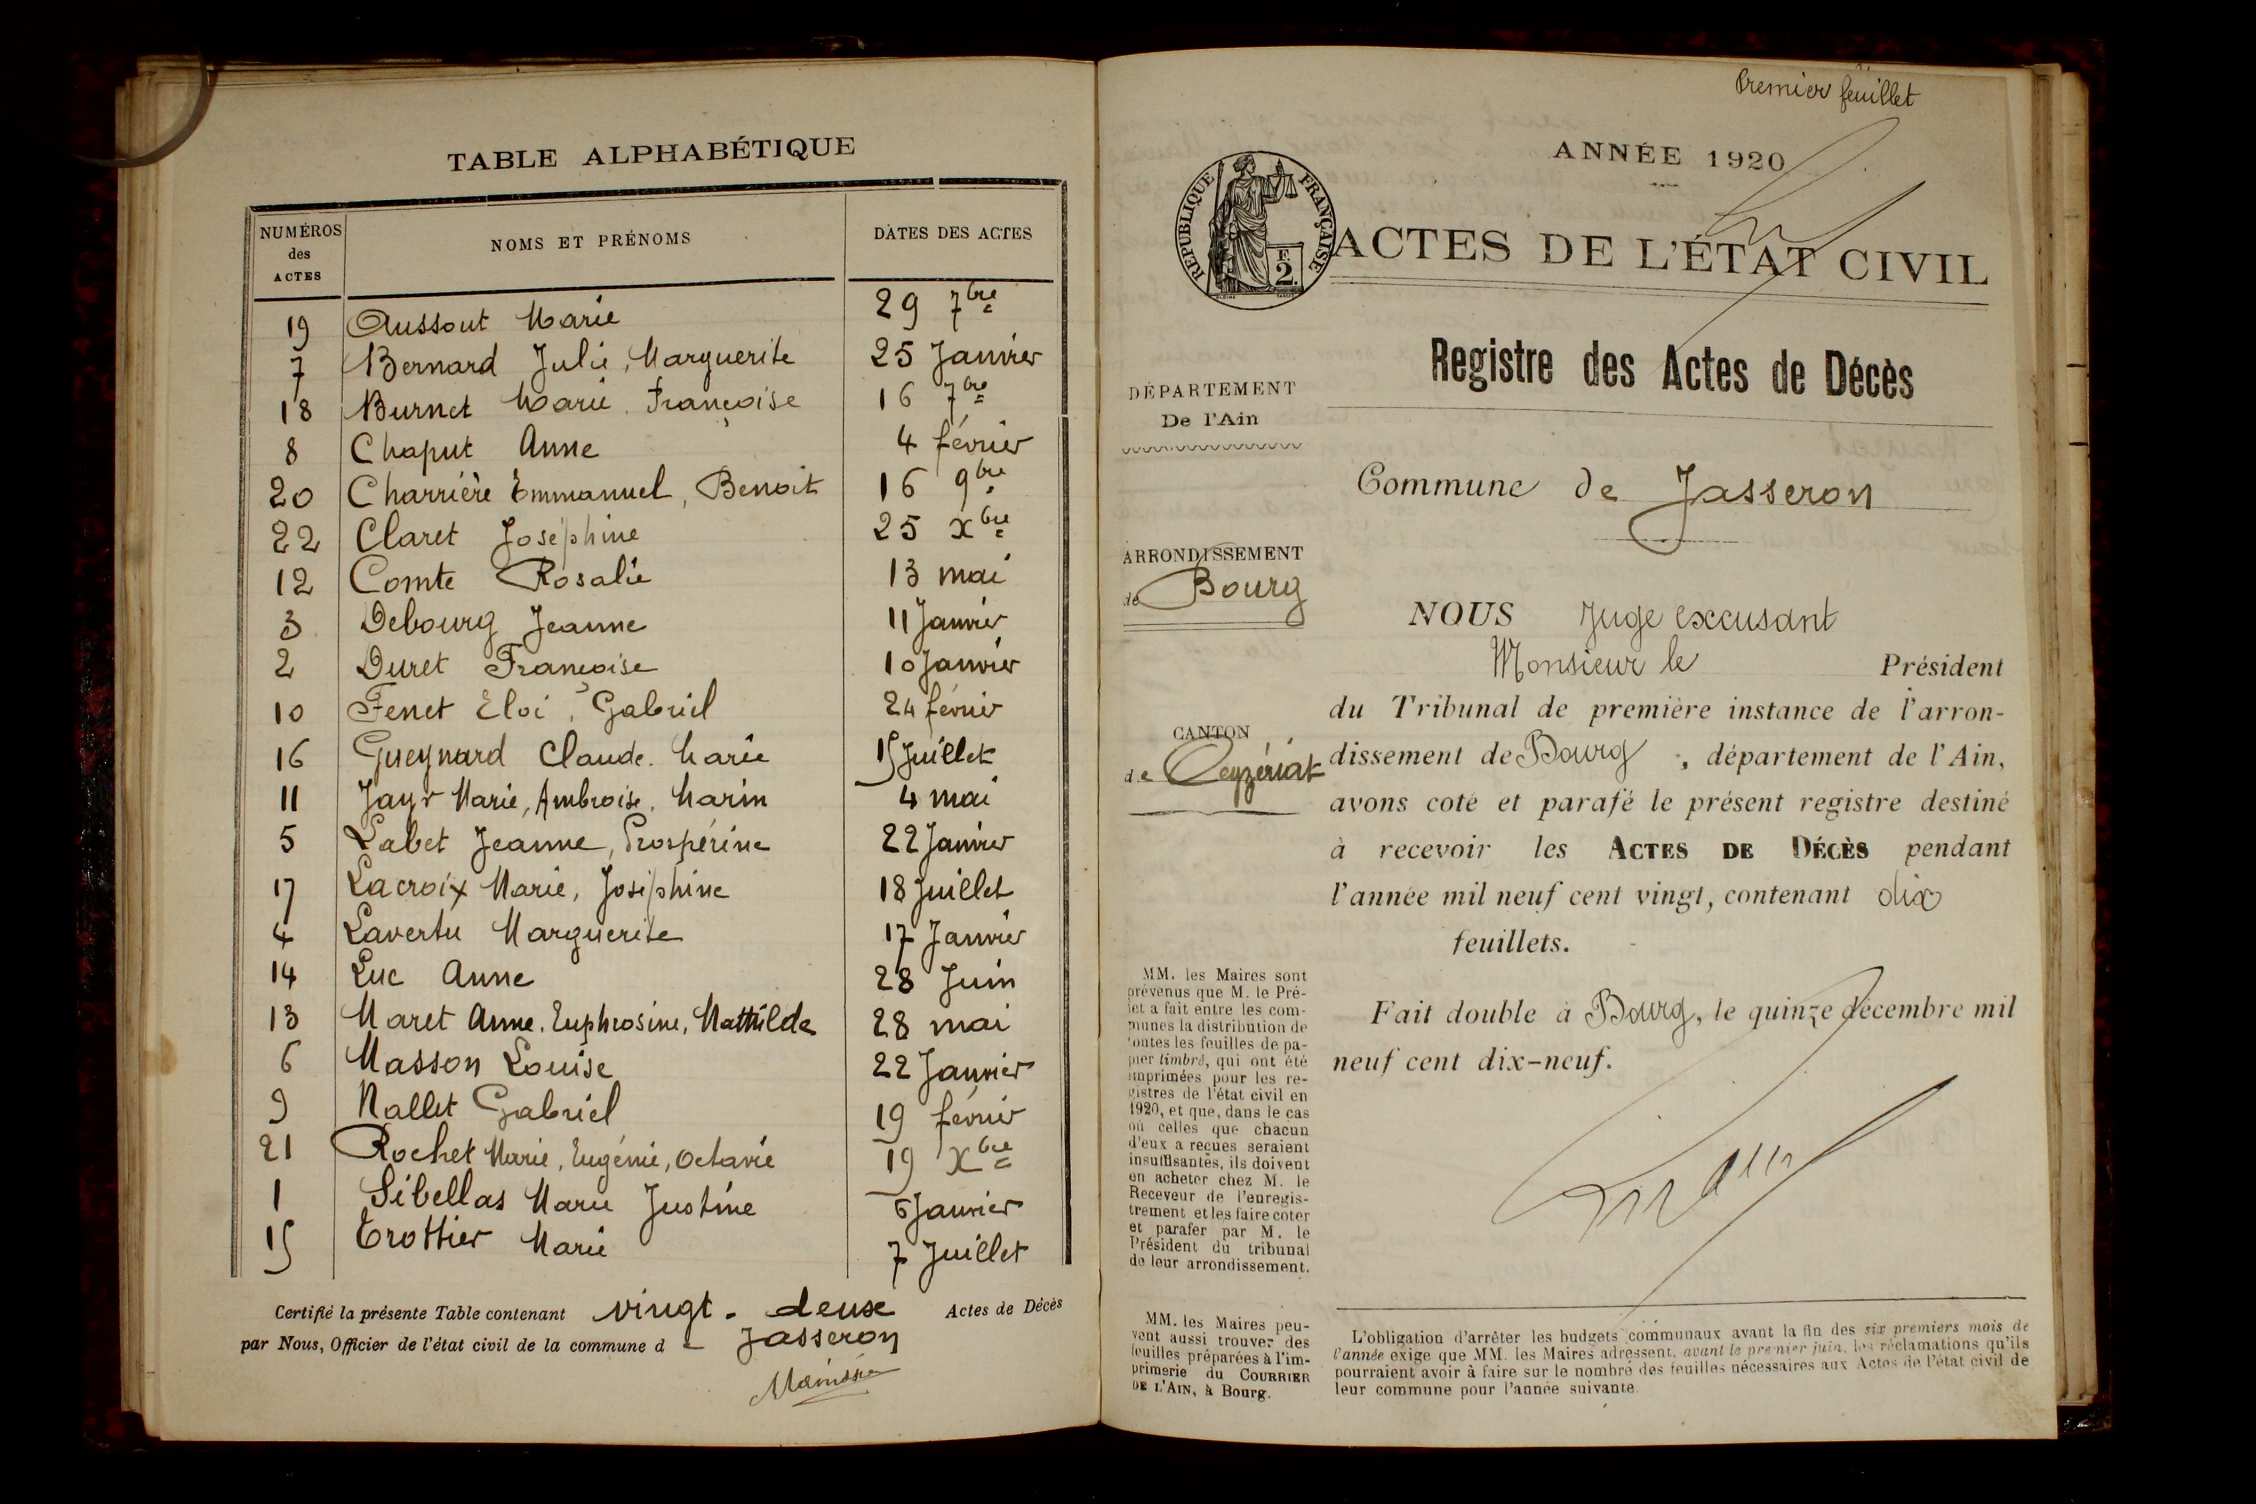 TABLE ALPHABÉTIQUE
NUMÉROS des ACTES NOMS ET PRÉNOMS DATES DES ACTES
19 Aussout Marie 29 7bre
7 Bernard Julie, Marguerite 25 Janvier
18 Burnet Marie Françoise 16 7bre
8 Chaput Anne 4 février
20 Charrière Emmanuel, Benoit 16 9bre
22 Claret Joséphine 25 xbre
12 Comte Rosalie 13 mai
3 Debourg Jeanne 11 Janvier
2 Duret Françoise 10 Janvier
10 Fenet Eloi, Gabriel 24 février
16 Gueynard Claude. Marie 15 Juillet
11 Jayr Marie, Ambroise, Marin 4 mai
5 Labet Jeanne, Prospérine 22 Janvier
17 Lacroix Marie, Joséphine 18 Juillet
4 Lavertu Marguerite 17 Janvier
14 Luc Anne 28 Juin
13 Maret Anne, Euphrosine, Mathilde 28 mai
6 Masson Louise 22 Janvier
9 Nallet Gabriel 19 février
21 Rochet Marie, Eugénie, Octavie 19 xbre
1 Sibellas Marie Justine 6 Janvier
15 Trottier Marie 7 Juillet
Certifié la présente Table contenant vingt-deux Actes de Décès
par Nous, Officier de l'état civil de la commune de Jasseron
Premier feuillet
ANNÉE 1920
RÉPUBLIQUE FRANÇAISE
F. 2.
ACTES DE L'ÉTAT CIVIL
Registre des Actes de Décès
DÉPARTEMENT
De l'Ain
Commune de Jasseron
ARRONDISSEMENT
de Bourg
CANTON
de Ceyzériat
NOUS Juge excusant
Monsieur le Président
du Tribunal de première instance de l'arron-
dissement de Bourg, département de l'Ain,
avons coté et parafé le présent registre destiné
à recevoir les ACTES DE DÉCÈS pendant
l'année mil neuf cent vingt, contenant dix
feuillets.
Fait double à Bourg, le quinze décembre mil
neuf cent dix-neuf.
MM. les Maires sont
prévenus que M. le Pré-
fet a fait entre les com-
munes la distribution de
toutes les feuilles de pa-
pier timbré, qui ont été
imprimées pour les re-
gistres de l'état civil en
1920, et que, dans le cas
où celles que chacun
d'eux a reçues seraient
insuffisantes, ils doivent
en acheter chez M. le
Receveur de l'enregis-
trement et les faire coter
et parafer par M. le
Président du tribunal
de leur arrondissement.
MM. les Maires peu-
vent aussi trouver des
feuilles préparées à l'im-
primerie du COURRIER
DE L'AIN, à Bourg.
L'obligation d'arrêter les budgets communaux avant la fin des six premiers mois de
l'année exige que MM. les Maires adressent, avant le premier juin, les réclamations qu'ils
pourraient avoir à faire sur le nombre des feuilles nécessaires aux Actes de l'état civil de
leur commune pour l'année suivante.